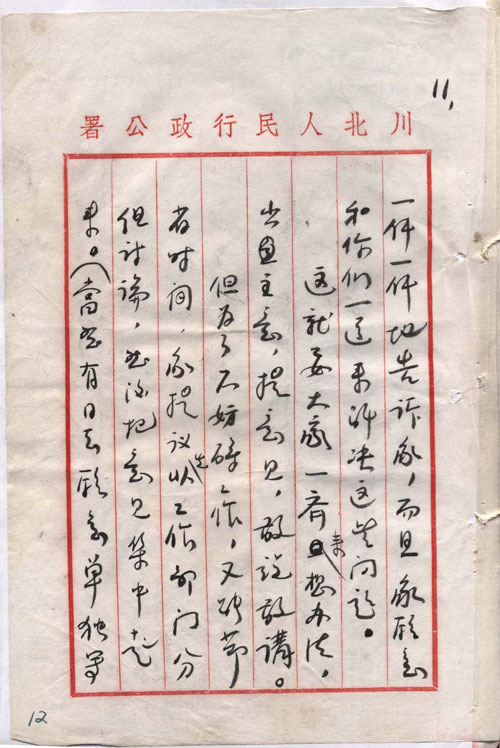 11,
川北人民行政公署
一件一件地告诉我,而且我愿意
和你们一道来解决这些问题。
这就要大家一齐来想办法,
出主意,提意见,敢说敢講。
但为了不妨碍工作,又能节
省时间,我提议先从工作部门分
讨论,然后把意见集中起
来。(當然有同志愿意单独写
12